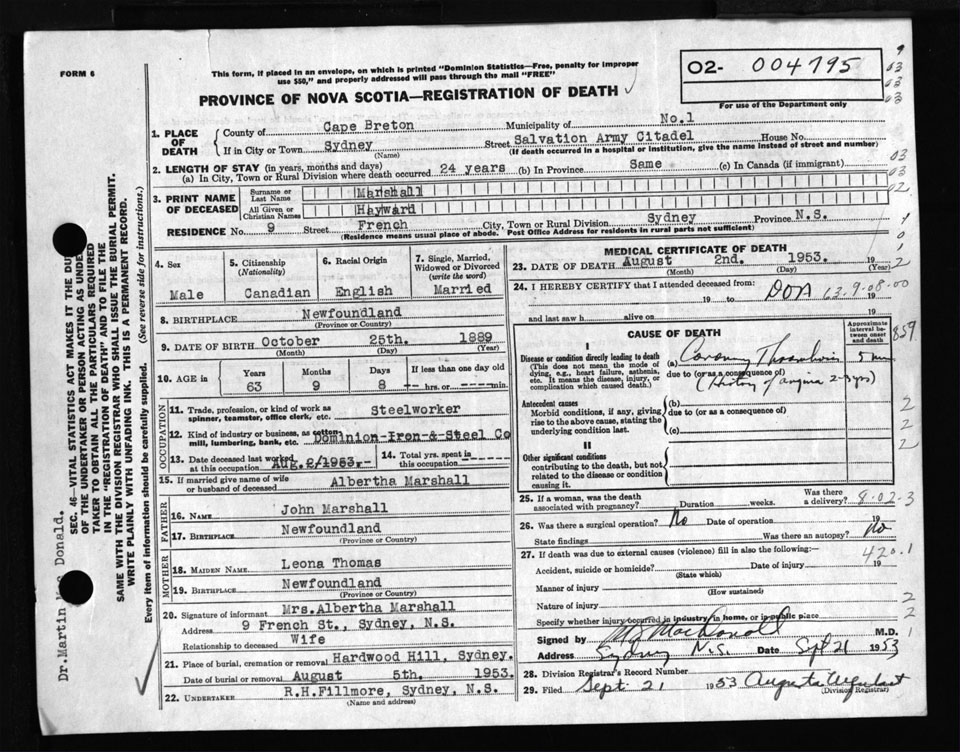 FORM 6
This form, if placed in an envelope, on which is printed "Dominion Statistics—Free, penalty for improper
use $50," and properly addressed will pass through the mail "FREE"
02- 004795
For use of the Department only
PROVINCE OF NOVA SCOTIA—REGISTRATION OF DEATH
1. PLACE OF DEATH
County of Cape Breton Municipality of No.1
If in City or Town Sydney Street Salvation Army Citadel House No.
(Name) (If death occurred in a hospital or institution, give the name instead of street and number)
2. LENGTH OF STAY (in years, months and days)
(a) In City, Town or Rural Division where death occurred 24 years (b) In Province Same (c) In Canada (if immigrant)
3. PRINT NAME OF DECEASED
Surname or Last Name Marshall
All Given or Christian Names Hayward
RESIDENCE No. 9 Street French City, Town or Rural Division Sydney Province N.S.
(Residence means usual place of abode. Post Office Address for residents in rural parts not sufficient)
4. Sex
Male
5. Citizenship (Nationality)
Canadian
6. Racial Origin
English
7. Single, Married, Widowed or Divorced (write the word)
Married
8. BIRTHPLACE Newfoundland
(Province or Country)
9. DATE OF BIRTH October 25th. 1889
(Month) (Day) (Year)
10. AGE in Years Months Days If less than one day old
63 9 8 -- hrs. or ---- min.
OCCUPATION
11. Trade, profession, or kind of work as spinner, teamster, office clerk, etc. Steelworker
12. Kind of industry or business, as cotton mill, lumbering, bank, etc. Dominion-Iron-&-Steel Co
13. Date deceased last worked at this occupation Aug.2/1953.-
14. Total yrs. spent in this occupation
15. If married give name of wife or husband of deceased Albertha Marshall
FATHER
16. NAME John Marshall
17. BIRTHPLACE Newfoundland
(Province or Country)
MOTHER
18. MAIDEN NAME Leona Thomas
19. BIRTHPLACE Newfoundland
(Province or Country)
20. Signature of informant Mrs.Albertha Marshall
Address 9 French St., Sydney, N.S.
Relationship to deceased Wife
21. Place of burial, cremation or removal Hardwood Hill, Sydney.
Date of burial or removal August 5th. 1953.
22. UNDERTAKER R.H.Fillmore, Sydney, N.S.
(Name and address)
MEDICAL CERTIFICATE OF DEATH
23. DATE OF DEATH August 2nd. 1953. 19
(Month) (Day) (Year)
24. I HEREBY CERTIFY that I attended deceased from:
19 to DOA 63-9-08-00 19
and last saw h alive on 19
CAUSE OF DEATH
Approximate interval between onset and death
I
Disease or condition directly leading to death
(This does not mean the mode of dying, e.g., heart failure, asthenia, etc. It means the disease, injury, or complication which caused death.)
(a) Coronary Thrombosis 5 min
due to (or as a consequence of)
(History of angina 2-3 yrs)
859
Antecedent causes
Morbid conditions, if any, giving rise to the above cause, stating the underlying condition last.
(b)
due to (or as a consequence of)
(c)
II
Other significant conditions
contributing to the death, but not related to the disease or condition causing it.
25. If a woman, was the death associated with pregnancy? Duration weeks. Was there a delivery? 8-02-3
26. Was there a surgical operation? No Date of operation 19
State findings Was there an autopsy? No
27. If death was due to external causes (violence) fill in also the following: 420.1
Accident, suicide or homicide? Date of injury 19
(State which)
Manner of injury
(How sustained)
Nature of injury
Specify whether injury occurred in industry, in home, or in public place
Signed by MacDonald M.D.
Address Sydney N.S. Date Sept 21 1953
28. Division Registrar's Record Number
29. Filed Sept. 21 1953 Augusta
(Division Registrar)
SEC. 46—VITAL STATISTICS ACT MAKES IT THE DUTY
OF THE UNDERTAKER OR PERSON ACTING AS UNDERTAKER
TO OBTAIN ALL THE PARTICULARS REQUIRED
IN THE "REGISTRATION OF DEATH" AND TO FILE THE
SAME WITH THE DIVISION REGISTRAR WHO SHALL ISSUE THE BURIAL PERMIT.
WRITE PLAINLY WITH UNFADING INK. THIS IS A PERMANENT RECORD.
Every item of information should be carefully supplied. (See reverse side for instructions.)
Dr.Martin Donald.